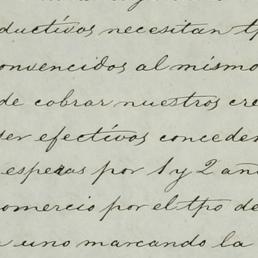 ductivos necesitan tp
onvencidos al mismo
de cobrar nuestros cre
ser efectivos conceden
esperas por 1 y 2 añ
omercio por el tpo de
uno marcando la